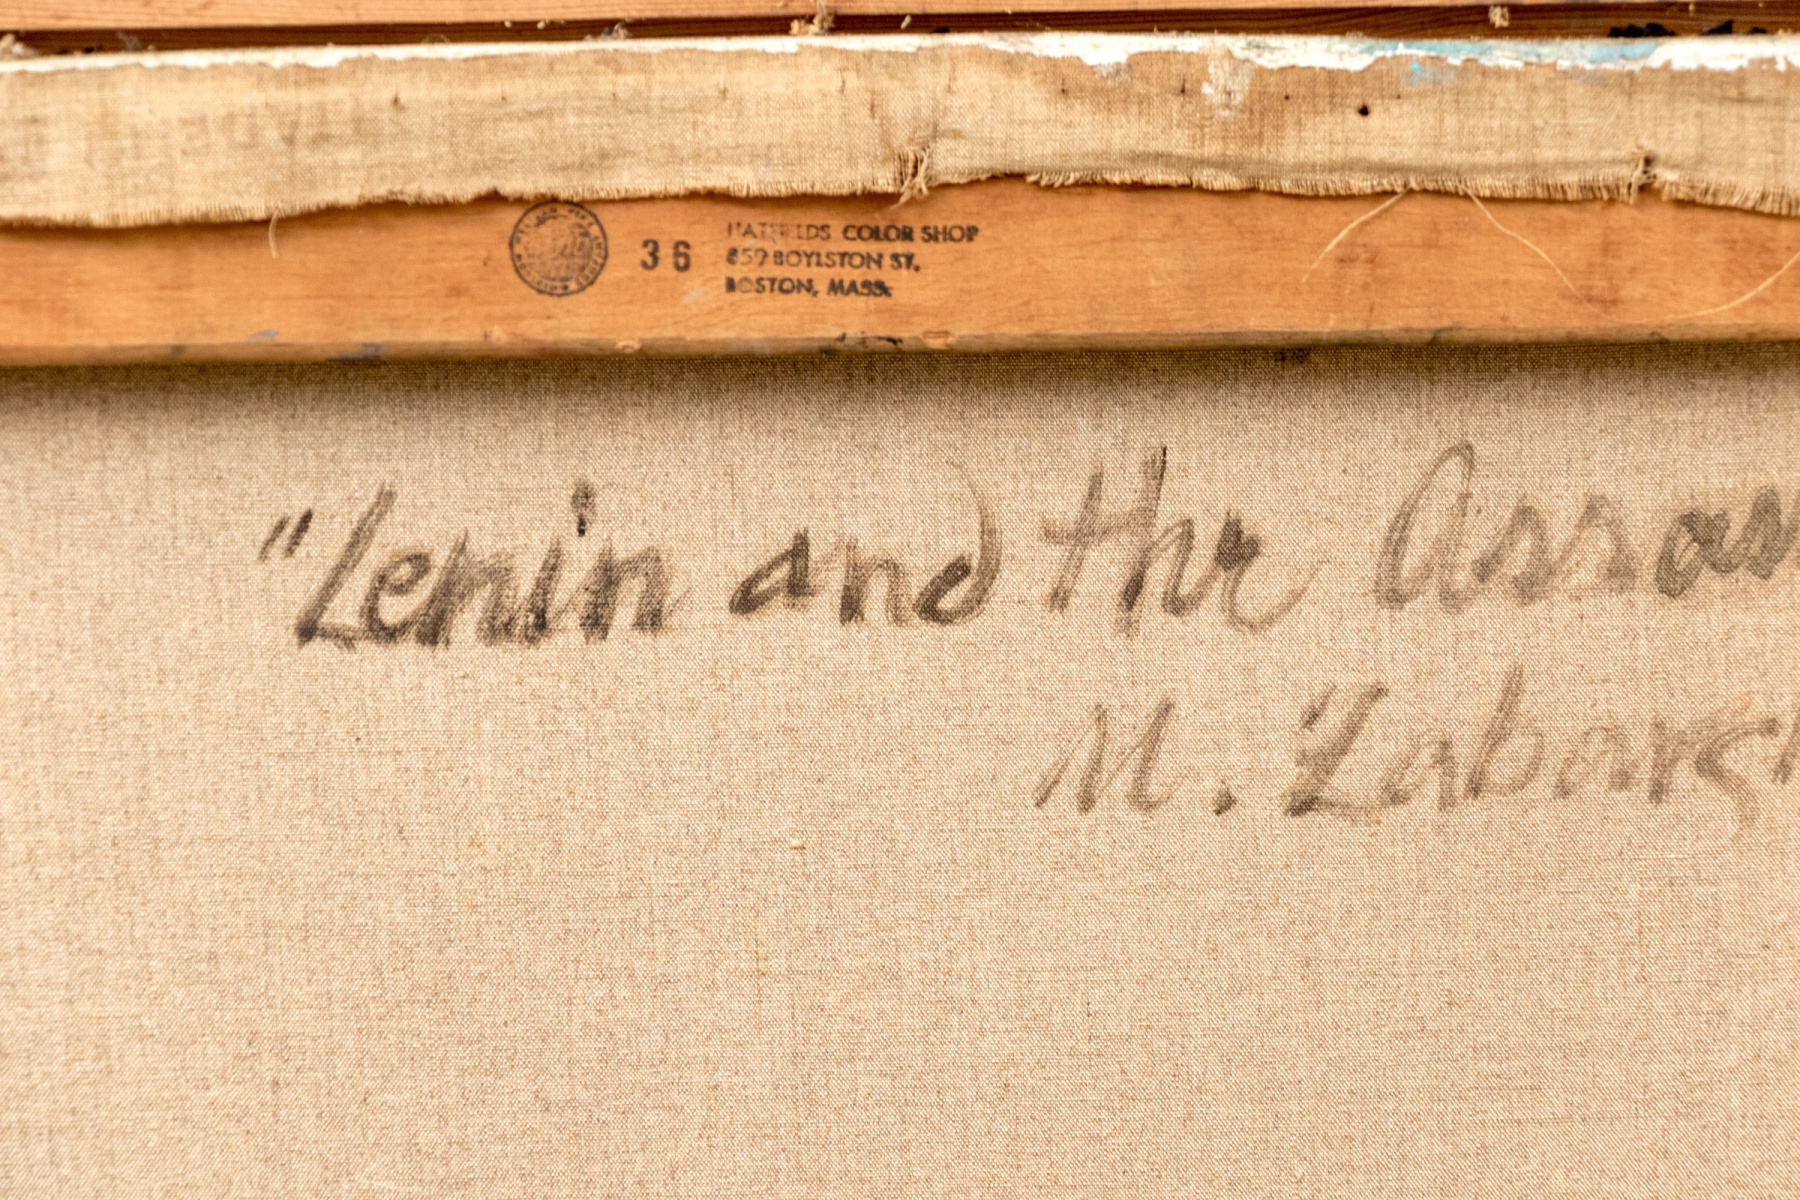 36
HATFIELDS COLOR SHOP
859 BOYLSTON ST.
BOSTON, MASS.
"Lenin and the Assas
M. Zabarsk